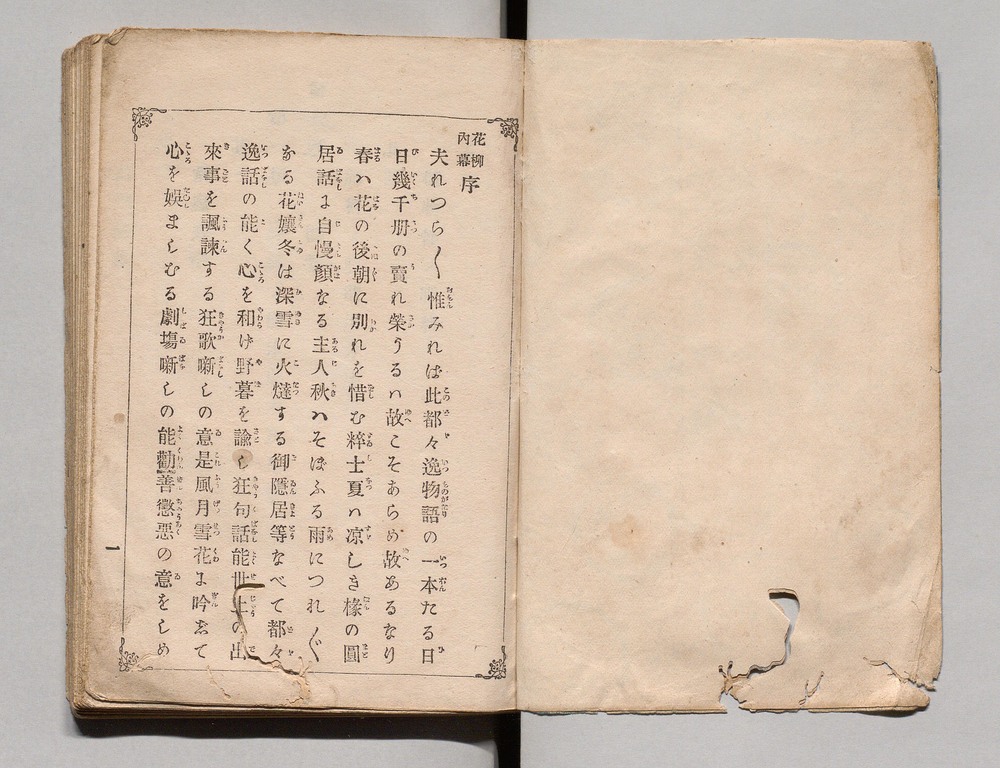 花柳內幕序
夫れつら〱惟みれば此都々逸物語の一本たる日
日幾千册の賣れ榮うるハ故こそあらめ故あるなり
春ハ花の後朝に別れを惜む粹士夏ハ凉しき椽の圓
居話ま自慢顏なる主人秋ハそぼふる雨につれ〲
なる花孃冬は深雪に火燵する御隱居等なべて都々
逸話の能く心を和け野暮を諭し狂句話能世上の出
來事を諷諫する狂歌噺しの意是風月雪花ま吟志て
心を娯ましむる劇塲噺しの能勸善懲惡の意をしめ
一